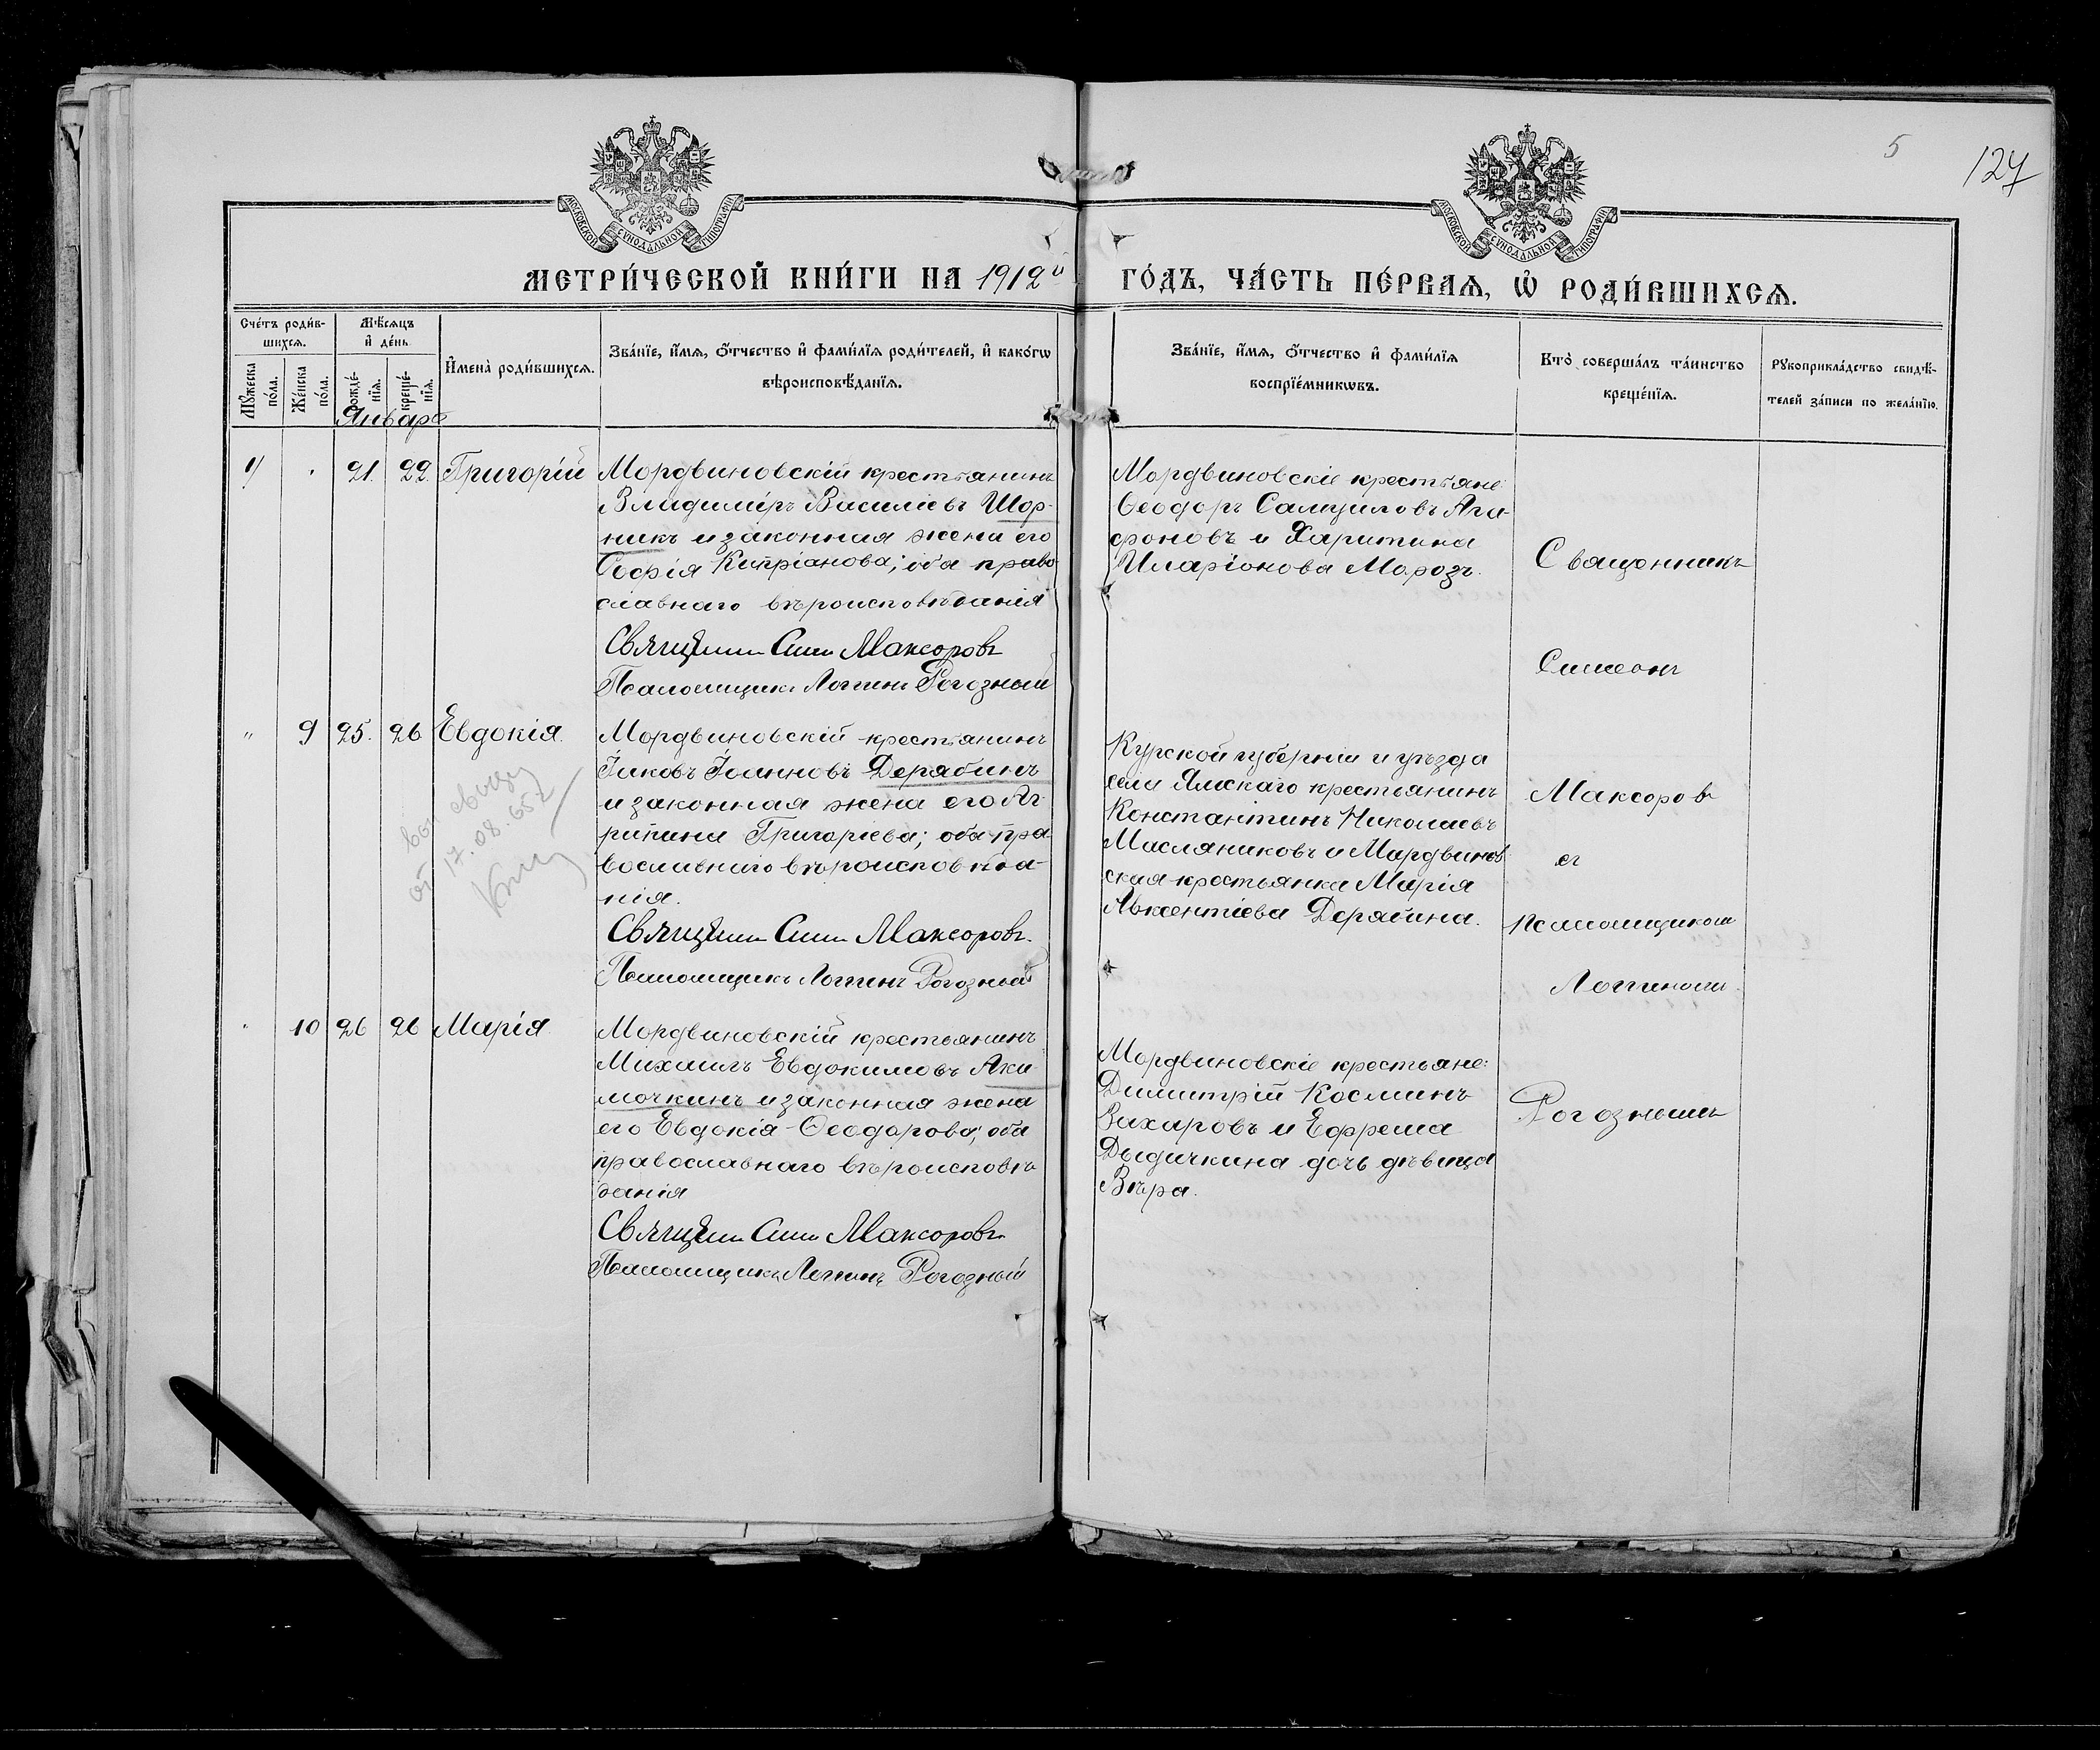 5
127
МОСКОВСКОЙ СѴНОДАЛЬНОЙ ТИПОГРАФІИ
МОСКОВСКОЙ СѴНОДАЛЬНОЙ ТИПОГРАФІИ
МЕТРИ́ЧЕСКОЙ КНИ́ГИ НА 1912й ГО́ДЪ, ЧА́СТЬ ПЕ́РВАѦ, Ѡ҆ РОДИ́ВШИХСѦ.
Сче́тъ роди́в-
шихсѧ.
Мꙋ́жеска
по́ла.
Же́нска
по́ла.
Мѣ́сѧцъ
и҆ де́нь
рожде́-
нїѧ.
креще́-
нїѧ.
И҆мена̀ роди́вшихсѧ.
Зва́нїе, и҆́мѧ, ѻ҆́тчество и҆ фами́лїѧ роди́телей, и҆ како́гѡ
вѣроисповѣ́данїѧ.
Зва́нїе, и҆́мѧ, ѻ҆́тчество и҆ фами́лїѧ
воспрїе́мникѡвъ.
Кто̀ соверша́лъ та́инство
креще́нїѧ.
Рꙋкоприкла́дство свидѣ́-
телей за́писи по жела́нїю.
Январь
21. 22. Григорій
Мордвиновскій крестьянинъ
Владиміръ Василіевъ Шор-
никъ и законная жена его
Софія Кипріанова; оба право
славнаго вѣроисповѣданія
Максоровъ
Псаломщикъ Логгинъ Рогозный
Мордвиновскіе крестьяне
Ѳеодоръ Самуиловъ Ага-
фоновъ и Харитина
Иларіонова Морозъ.
Священникъ
Симеонъ
" 9 25. 26 Евдокія.
от 17.08.65г
Мордвиновскій крестьянинъ
Іаковъ Іоанновъ Дерябинъ
и законная жена его Аг-
рипина Григоріева; оба пра-
вославнаго вѣроисповѣда-
нія.
Максоровъ.
Псаломщикъ Логгинъ Рогозный
Курской губерніи и уѣзда
села Ямскаго крестьянинъ
Константинъ Николаевъ
Масляниковъ и Мордвинов
ская крестьянка Марія
Авксентіева Дерябина.
Максоровъ
съ
псаломщикомъ
Логгиномъ.
10 26 26 Марія.
Мордвиновскій крестьянинъ
Михаилъ Евдокимовъ Аки-
мочкинъ и законная жена
его Евдокія Ѳеодорова; оба
православнаго вѣроисповѣ
данія
Максоровъ.
Псаломщикъ Логгинъ Рогозный
Мордвиновскіе крестьяне:
Димитрій Косминъ
Захаровъ и Ефрема
Дыдичкина дочь дѣвица
Вѣра.
Рогознымъ